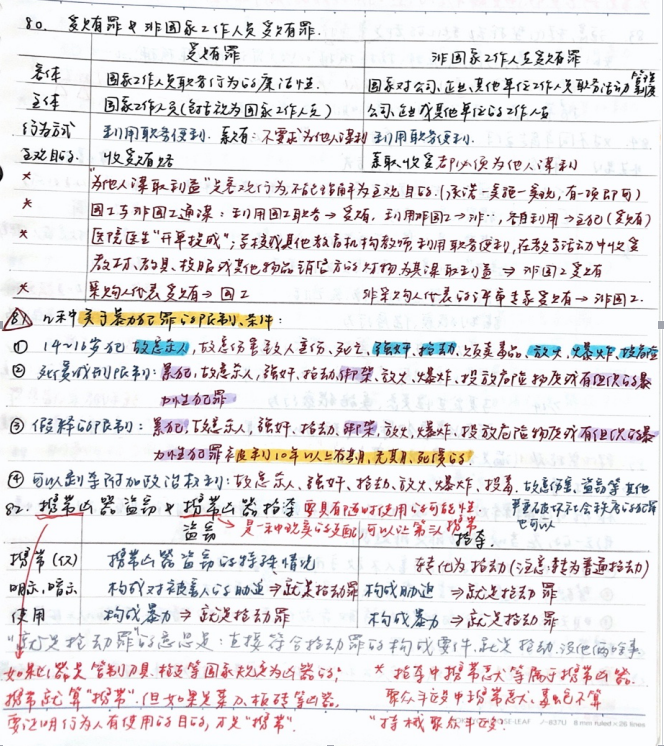 80. 受贿罪与非国家工作人员受贿罪.
受贿罪 非国家工作人员受贿罪
客体 国家工作人员职务行为的廉洁性. 国家对公司、企业、其他单位工作人员职务活动管理制度
主体 国家工作人员(包括视为国家工作人员) 公司、企业或其他单位的工作人员
行为方式 利用职务便利. 索贿:不要求为他人谋利 利用职务便利.
主观目的. 收受贿赂 索取、收受都必须为他人谋利
* "为他人谋取利益"是客观行为,不能理解为主观目的.(承诺—实施—实现,有一项即可)
* 国工与非国工通谋:利用国工职务→受贿, 利用非国工→非…, 各自利用→主犯(受贿)
* 医院医生"开单提成";学校或其他教育机构教师利用职务便利,在教学活动中收受
教材、教具、校服或其他物品销售方的财物为其谋取利益 ⇒ 非国工受贿
* 采购人代表受贿→国工 非采购人代表的评审专家受贿→非国工.
81 几种关于暴力犯罪的限制、条件:
① 14~16岁犯 故意杀人,故意伤害致人重伤、死亡,强奸、抢劫、贩卖毒品、放火、爆炸、投危险
② 死缓减刑限制:累犯,故意杀人,强奸、抢劫、绑架、放火、爆炸、投放危险物质或有组织的暴
力性犯罪
③ 假释的限制:累犯,故意杀人,强奸、抢劫、绑架、放火、爆炸、投放危险物质或有组织的暴
力性犯罪 被判10年以上有期,无期、死缓的.
④ 可以剥夺附加政治权利:故意杀人、强奸、抢劫、放火、爆炸、投毒、故意伤害、盗窃等其他
严重破坏社会秩序的犯罪
也可以
82. 携带凶器盗窃与携带凶器抢夺 要具有随时使用的可能性
→是一种现实的支配,可以让第三人携带
盗窃 抢夺.
携带(仅) 携带凶器盗窃的特殊情况 转化为抢劫(注意:转为普通抢劫)
明示、暗示 构成对被害人的胁迫⇒就是抢劫罪 构成胁迫 ⇒就是抢劫罪
使用 构成暴力 ⇒ 就是抢劫罪 构成暴力 ⇒ 就是抢劫罪
"就是抢劫罪"的意思是:直接符合抢劫罪的构成要件,就是抢劫,没他俩啥事
如果凶器是管制刀具、枪支等国家规定为凶器的,
携带就算"携带". 但如果是菜刀、板砖等凶器,
要证明行为人有使用的目的,才是"携带".
* 抢夺中携带恶犬等属于携带凶器.
聚众斗殴中携带恶犬、 不算
"持械聚众斗殴".